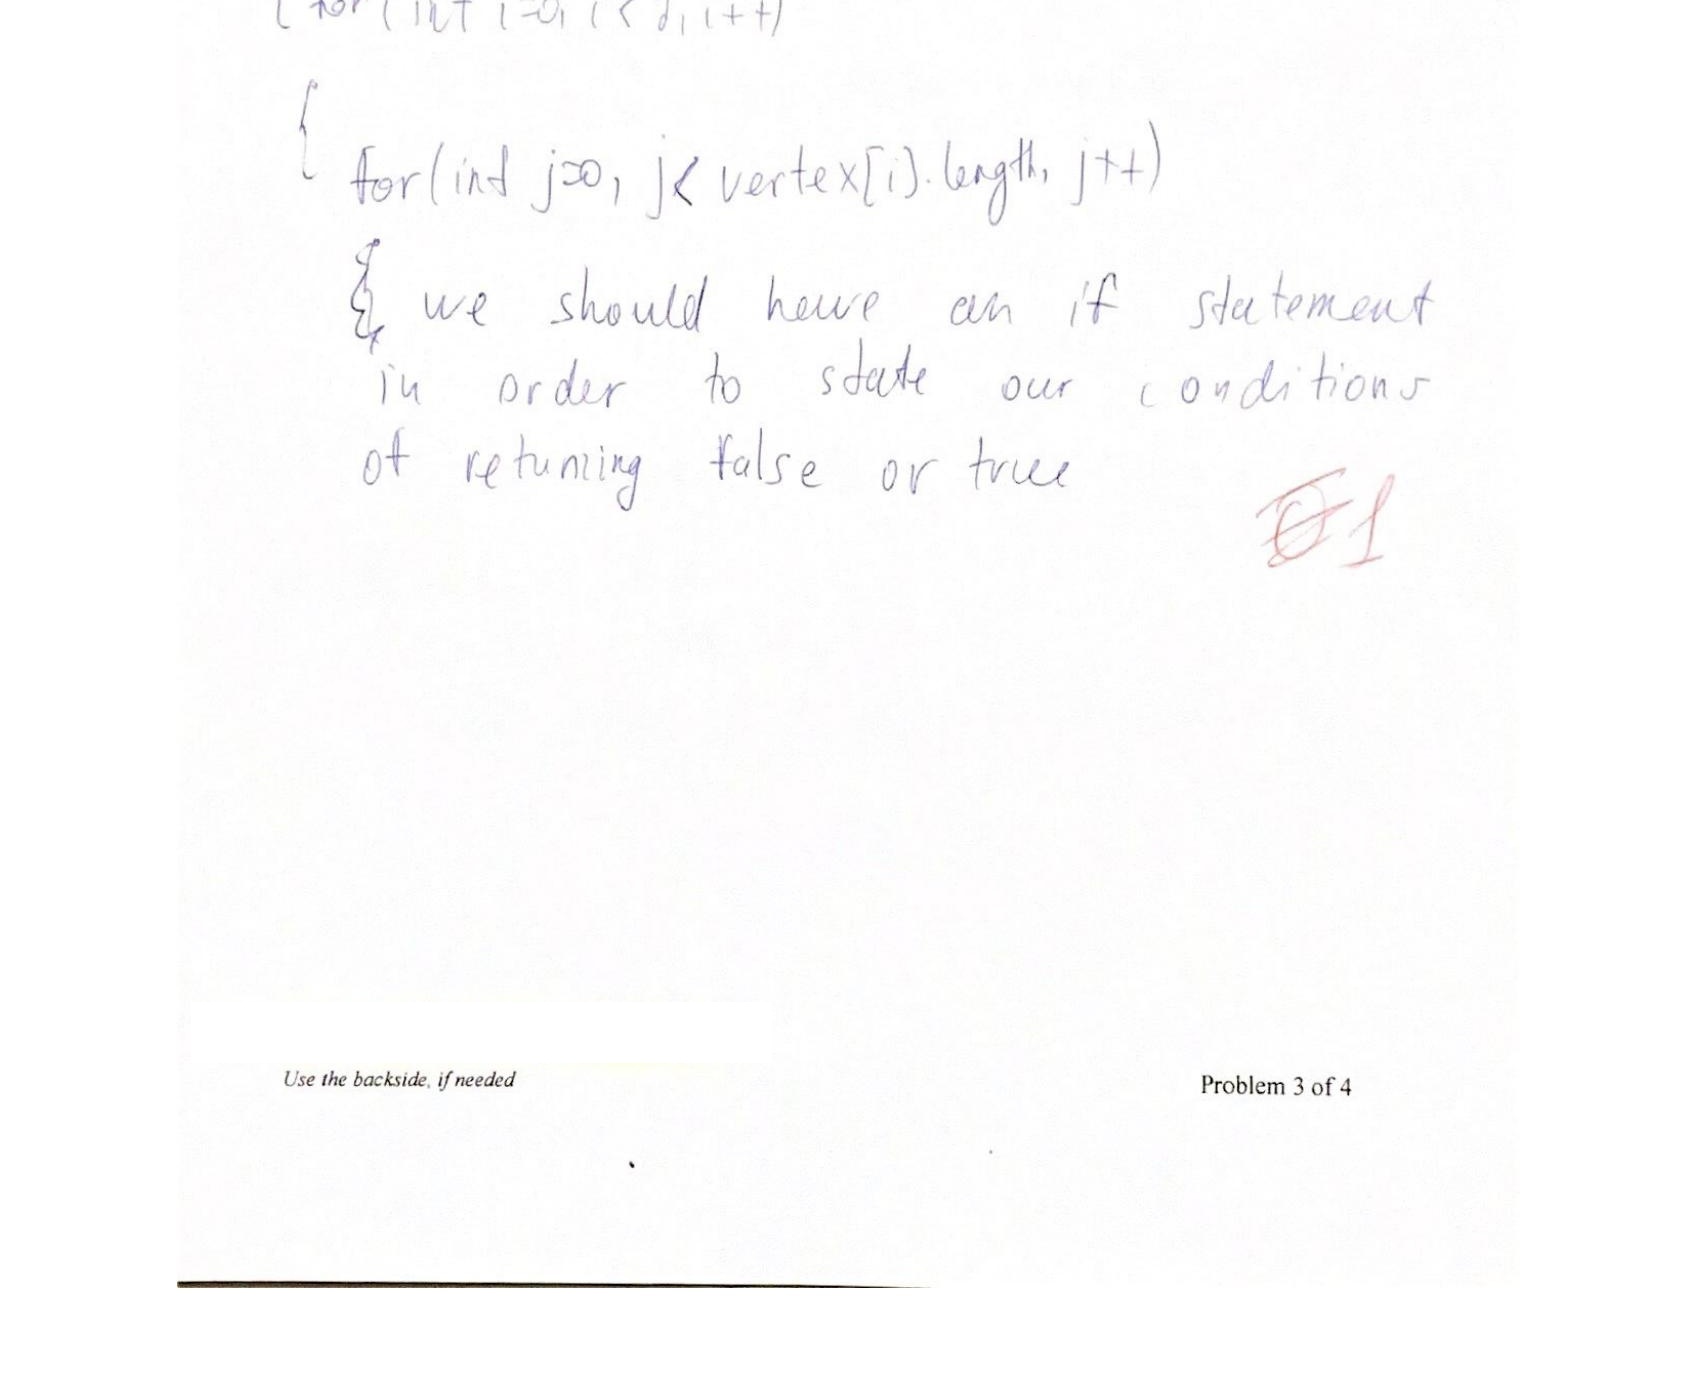 { for ( int i=0, i < d, i++)
{
for(int j=0, j< vertex[i].length, j++)
{ we should have an if statement
in order to state our conditions
of retuning false or true
1
Use the backside, if needed
Problem 3 of 4